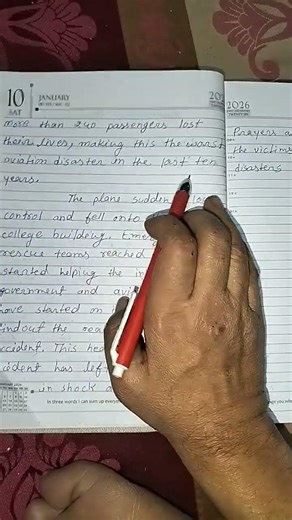 10
SAT
JANUARY
2026
more than 240 passengers lost
their lives, making this the worst
aviation disaster in the last ten
years.
The plane sudden los
control and fell onto
college building. Emer
rescue teams reached
started helping the in
government and avi
have started an
findout the rea
ccident. This hea
cident has lef
in shock a
In three words I can sum up everyt
Prayers a
the victims
disasters